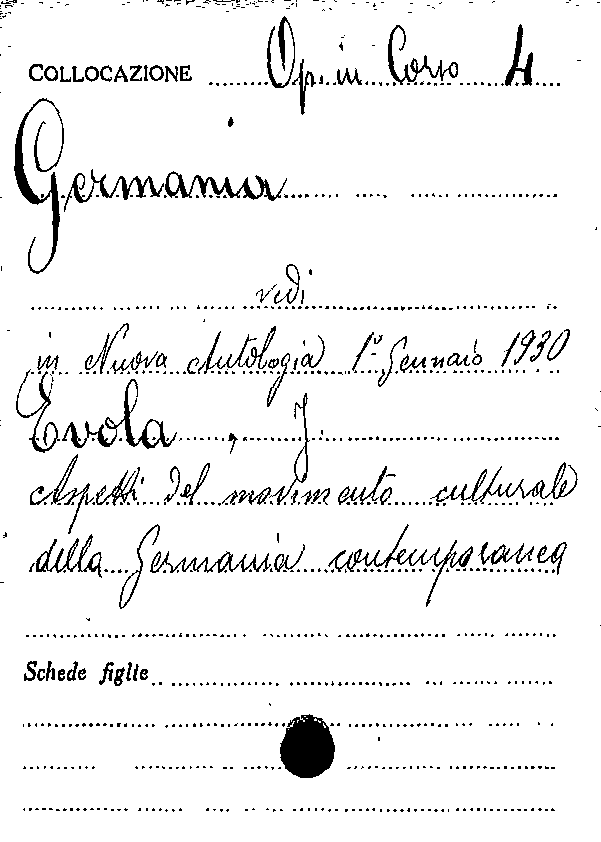 COLLOCAZIONE Op. in Corso 4
Germania
vedi
in Nuova Antologia 1º Gennaio 1930
Evola, J.
Aspetti del movimento culturale
della Germania contemporanea
Schede figlie